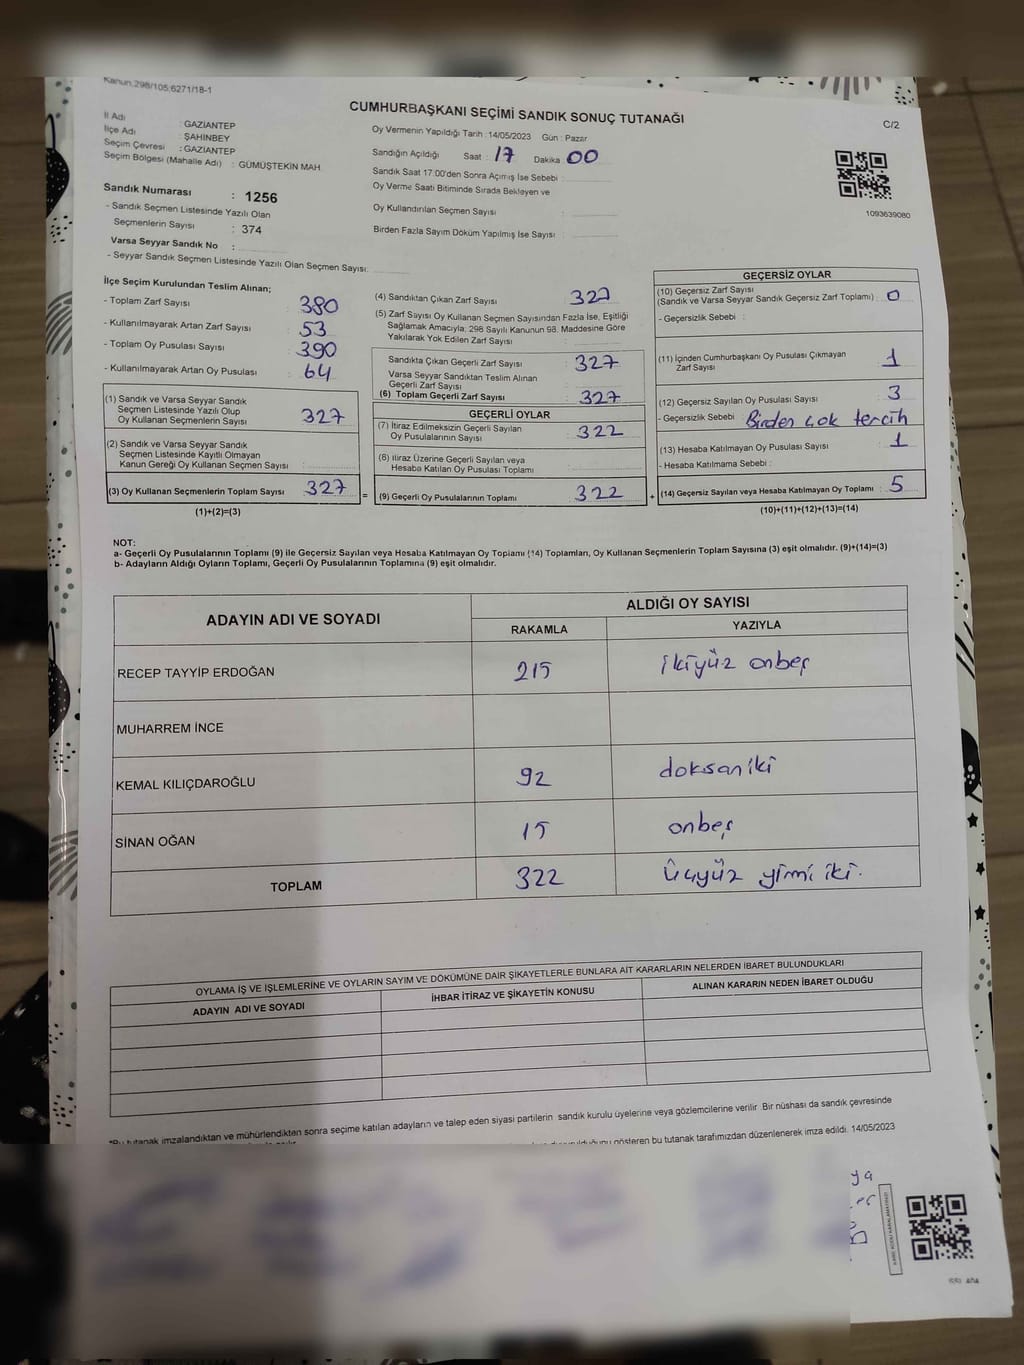 Kanun:298/105;6271/18-1
CUMHURBAŞKANI SEÇİMİ SANDIK SONUÇ TUTANAĞI
C/2
İl Adı : GAZİANTEP
İlçe Adı : ŞAHİNBEY
Seçim Çevresi : GAZİANTEP
Seçim Bölgesi (Mahalle Adı) : GÜMÜŞTEKİN MAH.
Sandık Numarası : 1256
- Sandık Seçmen Listesinde Yazılı Olan
Seçmenlerin Sayısı : 374
Varsa Seyyar Sandık No :
- Seyyar Sandık Seçmen Listesinde Yazılı Olan Seçmen Sayısı:
Oy Vermenin Yapıldığı Tarih : 14/05/2023 Gün : Pazar
Sandığın Açıldığı Saat : 17 Dakika 00
Sandık Saat 17:00'den Sonra Açılmış İse Sebebi :
Oy Verme Saati Bitiminde Sırada Bekleyen ve
Oy Kullandırılan Seçmen Sayısı :
Birden Fazla Sayım Döküm Yapılmış İse Sayısı :
1093639080
İlçe Seçim Kurulundan Teslim Alınan;
- Toplam Zarf Sayısı : 380
- Kullanılmayarak Artan Zarf Sayısı : 53
- Toplam Oy Pusulası Sayısı : 390
- Kullanılmayarak Artan Oy Pusulası : 64
(1) Sandık ve Varsa Seyyar Sandık
Seçmen Listesinde Yazılı Olup
Oy Kullanan Seçmenlerin Sayısı : 327
(2) Sandık ve Varsa Seyyar Sandık
Seçmen Listesinde Kayıtlı Olmayan
Kanun Gereği Oy Kullanan Seçmen Sayısı :
(3) Oy Kullanan Seçmenlerin Toplam Sayısı : 327
(1)+(2)=(3)
(4) Sandıktan Çıkan Zarf Sayısı : 327
(5) Zarf Sayısı Oy Kullanan Seçmen Sayısından Fazla İse, Eşitliği
Sağlamak Amacıyla; 298 Sayılı Kanunun 98. Maddesine Göre
Yakılarak Yok Edilen Zarf Sayısı :
Sandıkta Çıkan Geçerli Zarf Sayısı : 327
Varsa Seyyar Sandıktan Teslim Alınan
Geçerli Zarf Sayısı :
(6) Toplam Geçerli Zarf Sayısı : 327
GEÇERLİ OYLAR
(7) İtiraz Edilmeksizin Geçerli Sayılan
Oy Pusulalarının Sayısı : 322
(8) İtiraz Üzerine Geçerli Sayılan veya
Hesaba Katılan Oy Pusulası Toplamı :
= (9) Geçerli Oy Pusulalarının Toplamı : 322 +
GEÇERSİZ OYLAR
(10) Geçersiz Zarf Sayısı
(Sandık ve Varsa Seyyar Sandık Geçersiz Zarf Toplamı) : 0
- Geçersizlik Sebebi :
(11) İçinden Cumhurbaşkanı Oy Pusulası Çıkmayan
Zarf Sayısı : 1
(12) Geçersiz Sayılan Oy Pusulası Sayısı : 3
- Geçersizlik Sebebi : Birden çok tercih
(13) Hesaba Katılmayan Oy Pusulası Sayısı : 1
- Hesaba Katılmama Sebebi :
(14) Geçersiz Sayılan veya Hesaba Katılmayan Oy Toplamı : 5
(10)+(11)+(12)+(13)=(14)
NOT:
a- Geçerli Oy Pusulalarının Toplamı (9) ile Geçersiz Sayılan veya Hesaba Katılmayan Oy Toplamı (14) Toplamları, Oy Kullanan Seçmenlerin Toplam Sayısına (3) eşit olmalıdır. (9)+(14)=(3)
b- Adayların Aldığı Oyların Toplamı, Geçerli Oy Pusulalarının Toplamına (9) eşit olmalıdır.
ADAYIN ADI VE SOYADI ALDIĞI OY SAYISI
RAKAMLA YAZIYLA
RECEP TAYYİP ERDOĞAN 215 ikiyüz onbeş
MUHARREM İNCE
KEMAL KILIÇDAROĞLU 92 doksaniki
SİNAN OĞAN 15 onbeş
TOPLAM 322 üçyüz yirmi iki.
OYLAMA İŞ VE İŞLEMLERİNE VE OYLARIN SAYIM VE DÖKÜMÜNE DAİR ŞİKAYETLERLE BUNLARA AİT KARARLARIN NELERDEN İBARET BULUNDUKLARI
ADAYIN ADI VE SOYADI İHBAR İTİRAZ VE ŞİKAYETİN KONUSU ALINAN KARARIN NEDEN İBARET OLDUĞU
*Bu tutanak imzalandıktan ve mühürlendikten sonra seçime katılan adayların ve talep eden siyasi partilerin sandık kurulu üyelerine veya gözlemcilerine verilir. Bir nüshası da sandık çevresinde
gösteren bu tutanak tarafımızdan düzenlenerek imza edildi. 14/05/2023
ya